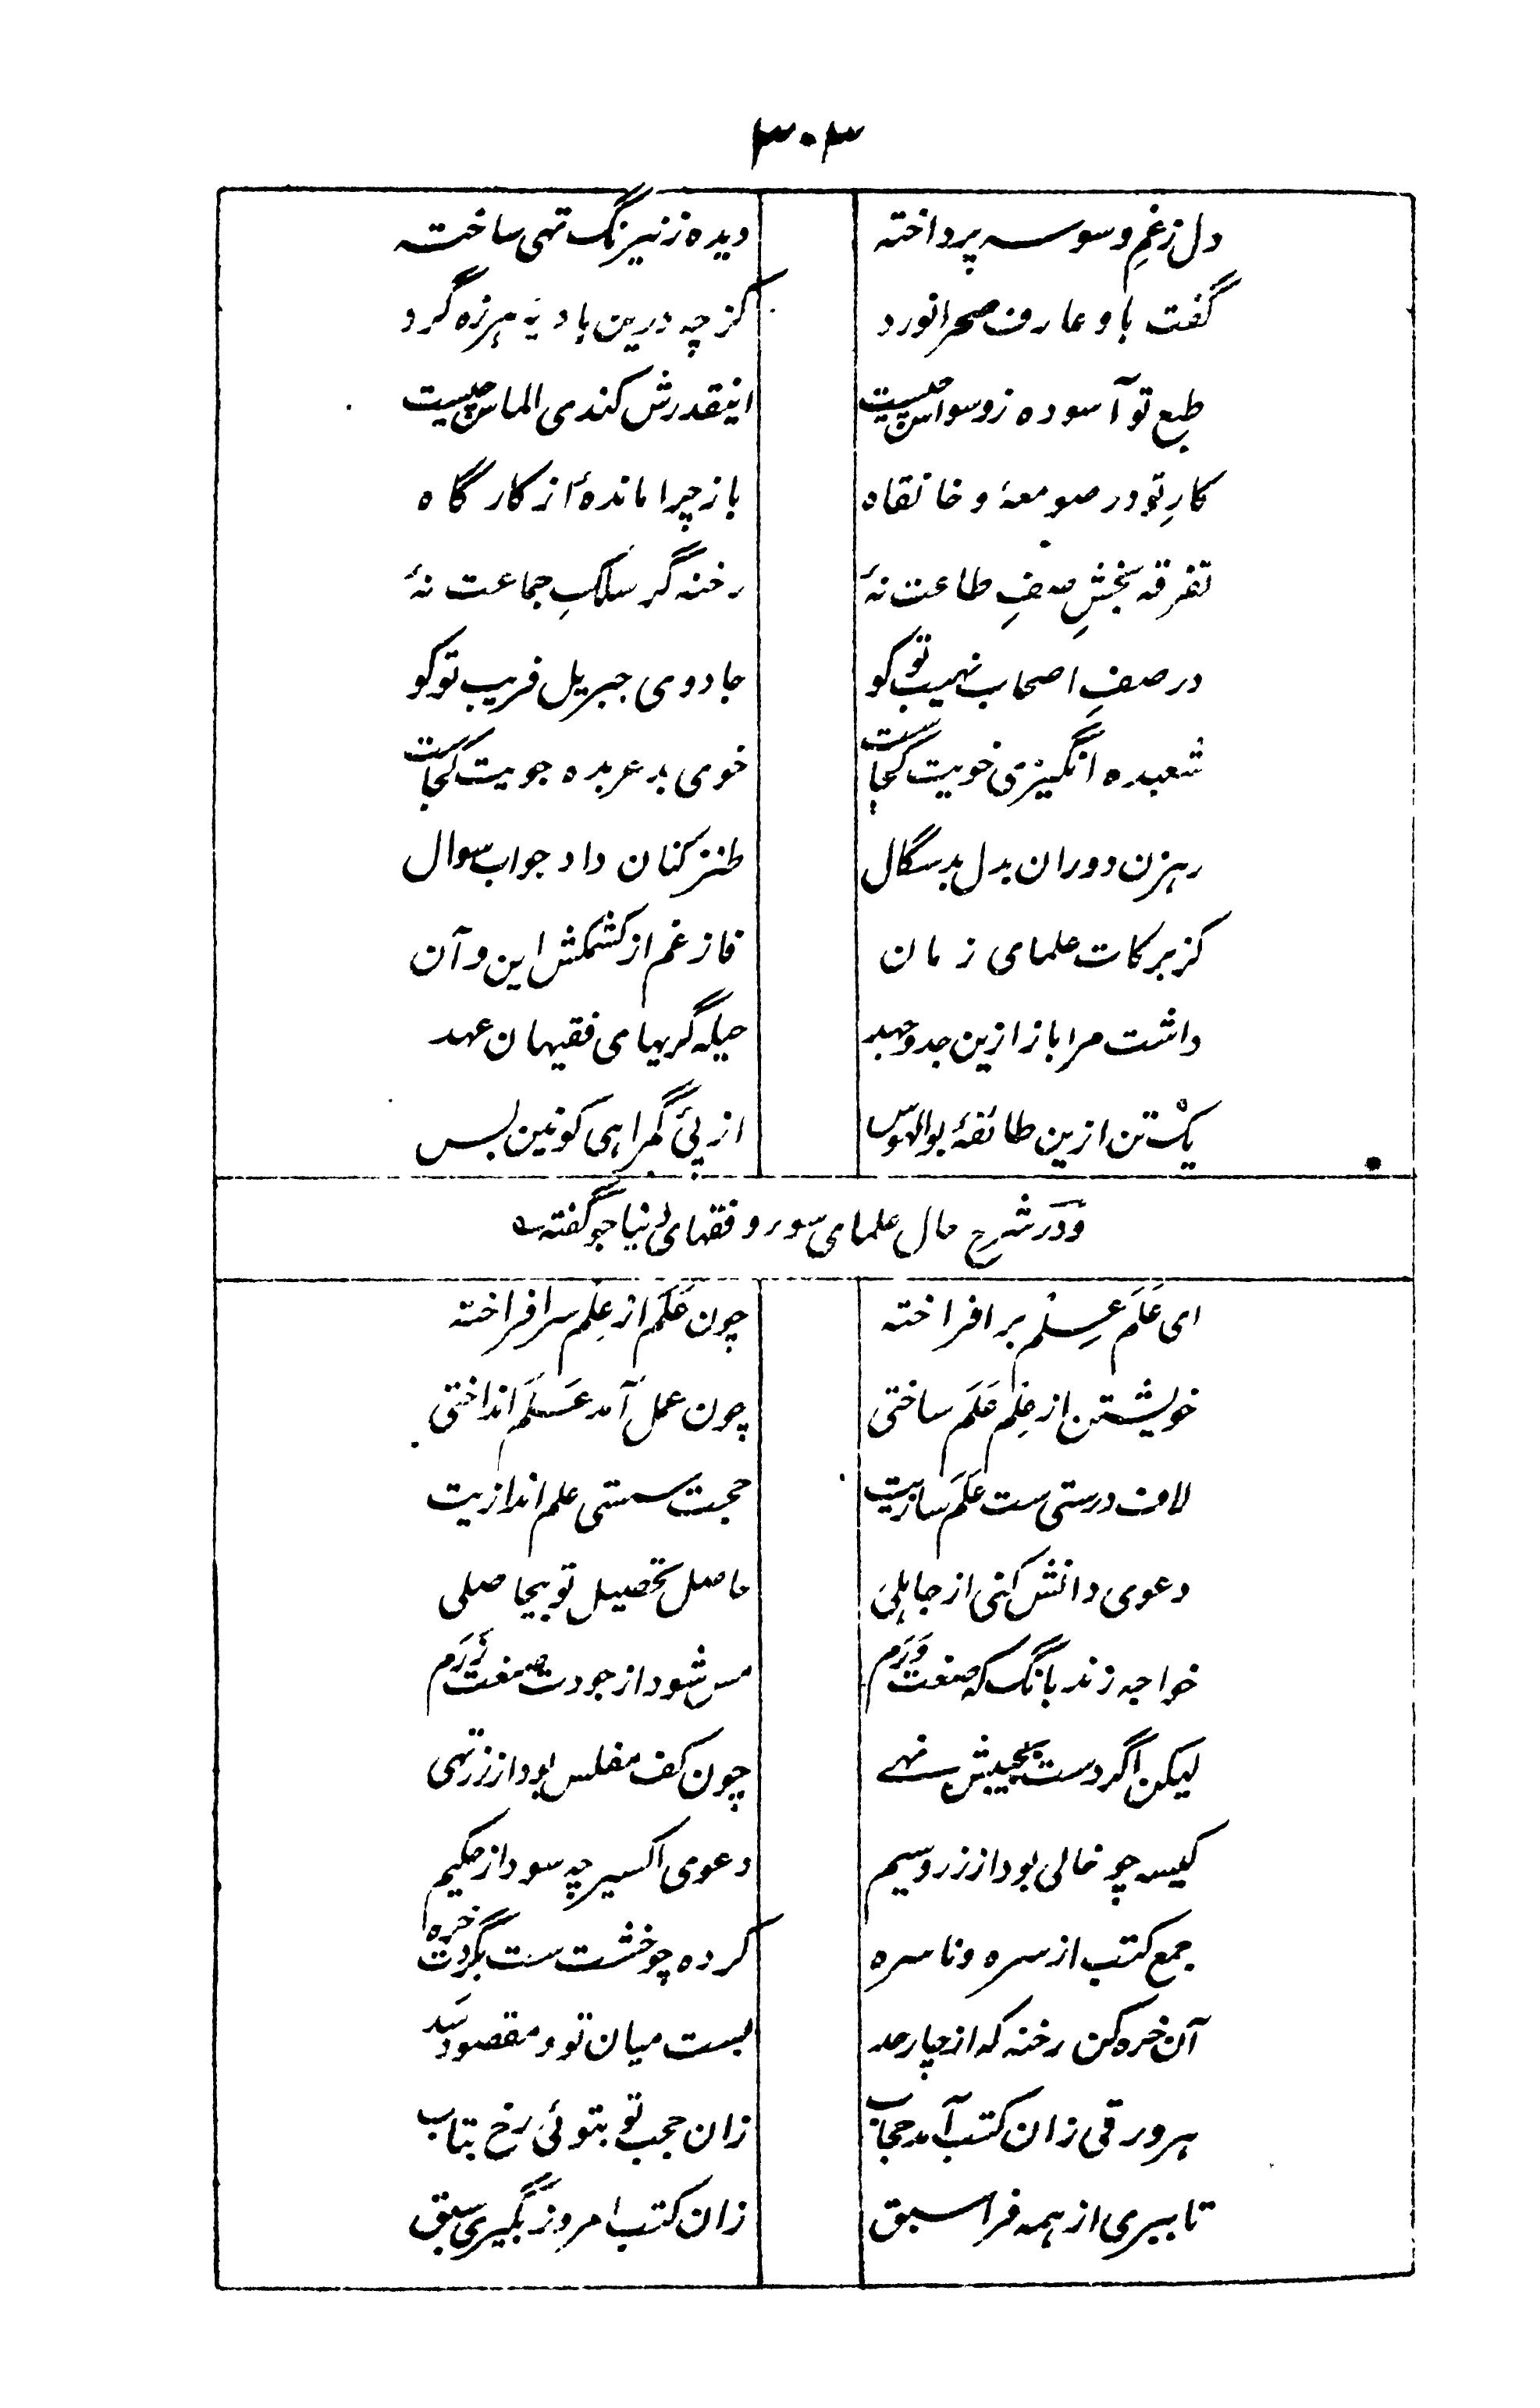 ۳۰۳
دل ز غمِ وسوسہ پرداختہ دیدہ ز نیرنگ تہی ساختہ
گفت باو عارف صحرانورد کز چہ درین بادیۂ ہرزہ گرد
طبع تو آسودہ ز وسواس چیست اینقدرش کندی الماس چیست
کارِ تو در صومعۂ و خانقاہ باز چرا ماندۂ از کارگاہ
تفرقہ بخشِ صفِ طاعت نۂ رخنہ گر سلکِ جماعت نۂ
در صفِ اصحاب نہیب تو کو جادوی جبریل فریب تو کو
شعبدہ انگیزی خویت کجاست خوی بد عربدہ جویت کجاست
رہزن دوران بدل بدسگال طنزکنان داد جواب سوال
کز برکات علمای زمان فارغم از کشمکش این و آن
داشت مرا باز ازین جد و جہد حیلہ گریہای فقیہان عہد
یکْتن ازین طائفۂ بوالہوس از پئ گمراہی کونین بس
و در شرح حال علمای سوء و فقہای دنیا جو گفتہ
ای عَلَم عِلْم بر افراختہ چون عَلَم از عِلم سر افراختہ
خویشتن از عِلم عَلَم ساختی چون عمل آمد عَلَم انداختی
لاف درستی ست عَلَم سازیت حجت سستی علم اندازیت
دعوی دانش کنی از جاہلی حاصل تحصیل تو بیحاصلی
خواجہ زند بانگ کہ صنعت ورم مس شود از جودت صنعت زرم
لیکن اگر دست بجیبش نہے چون کف مفلس بود از زر تہی
کیسہ چو خالی بود از زر و سیم دعوی اکسیر چہ سود از حکیم
جمع کتب از سرہ و ناسرہ کردہ چو خشت ست بگردت خرہ
آن خرہ کن رخنہ کہ از چار حد بست میان تو و مقصود سد
ہر ورقی زان کتب آمد حجاب زان حجب تو بتوئی رخ بتاب
تا ببری از ہمہ فردا سبق زان کتب امروز بگیری سبق